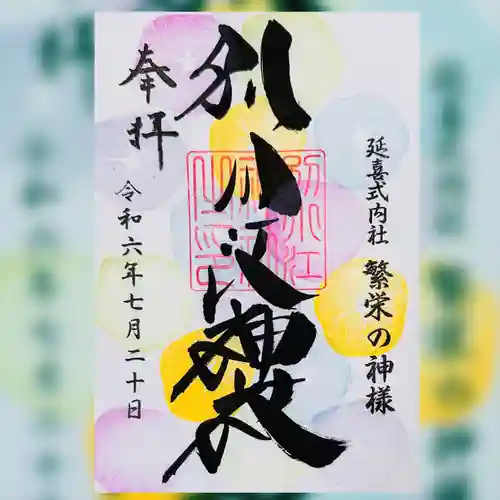 延喜式内社 繁栄の神様
別小江神社
別小江
神社
之印
奉拝
令和六年七月二十日